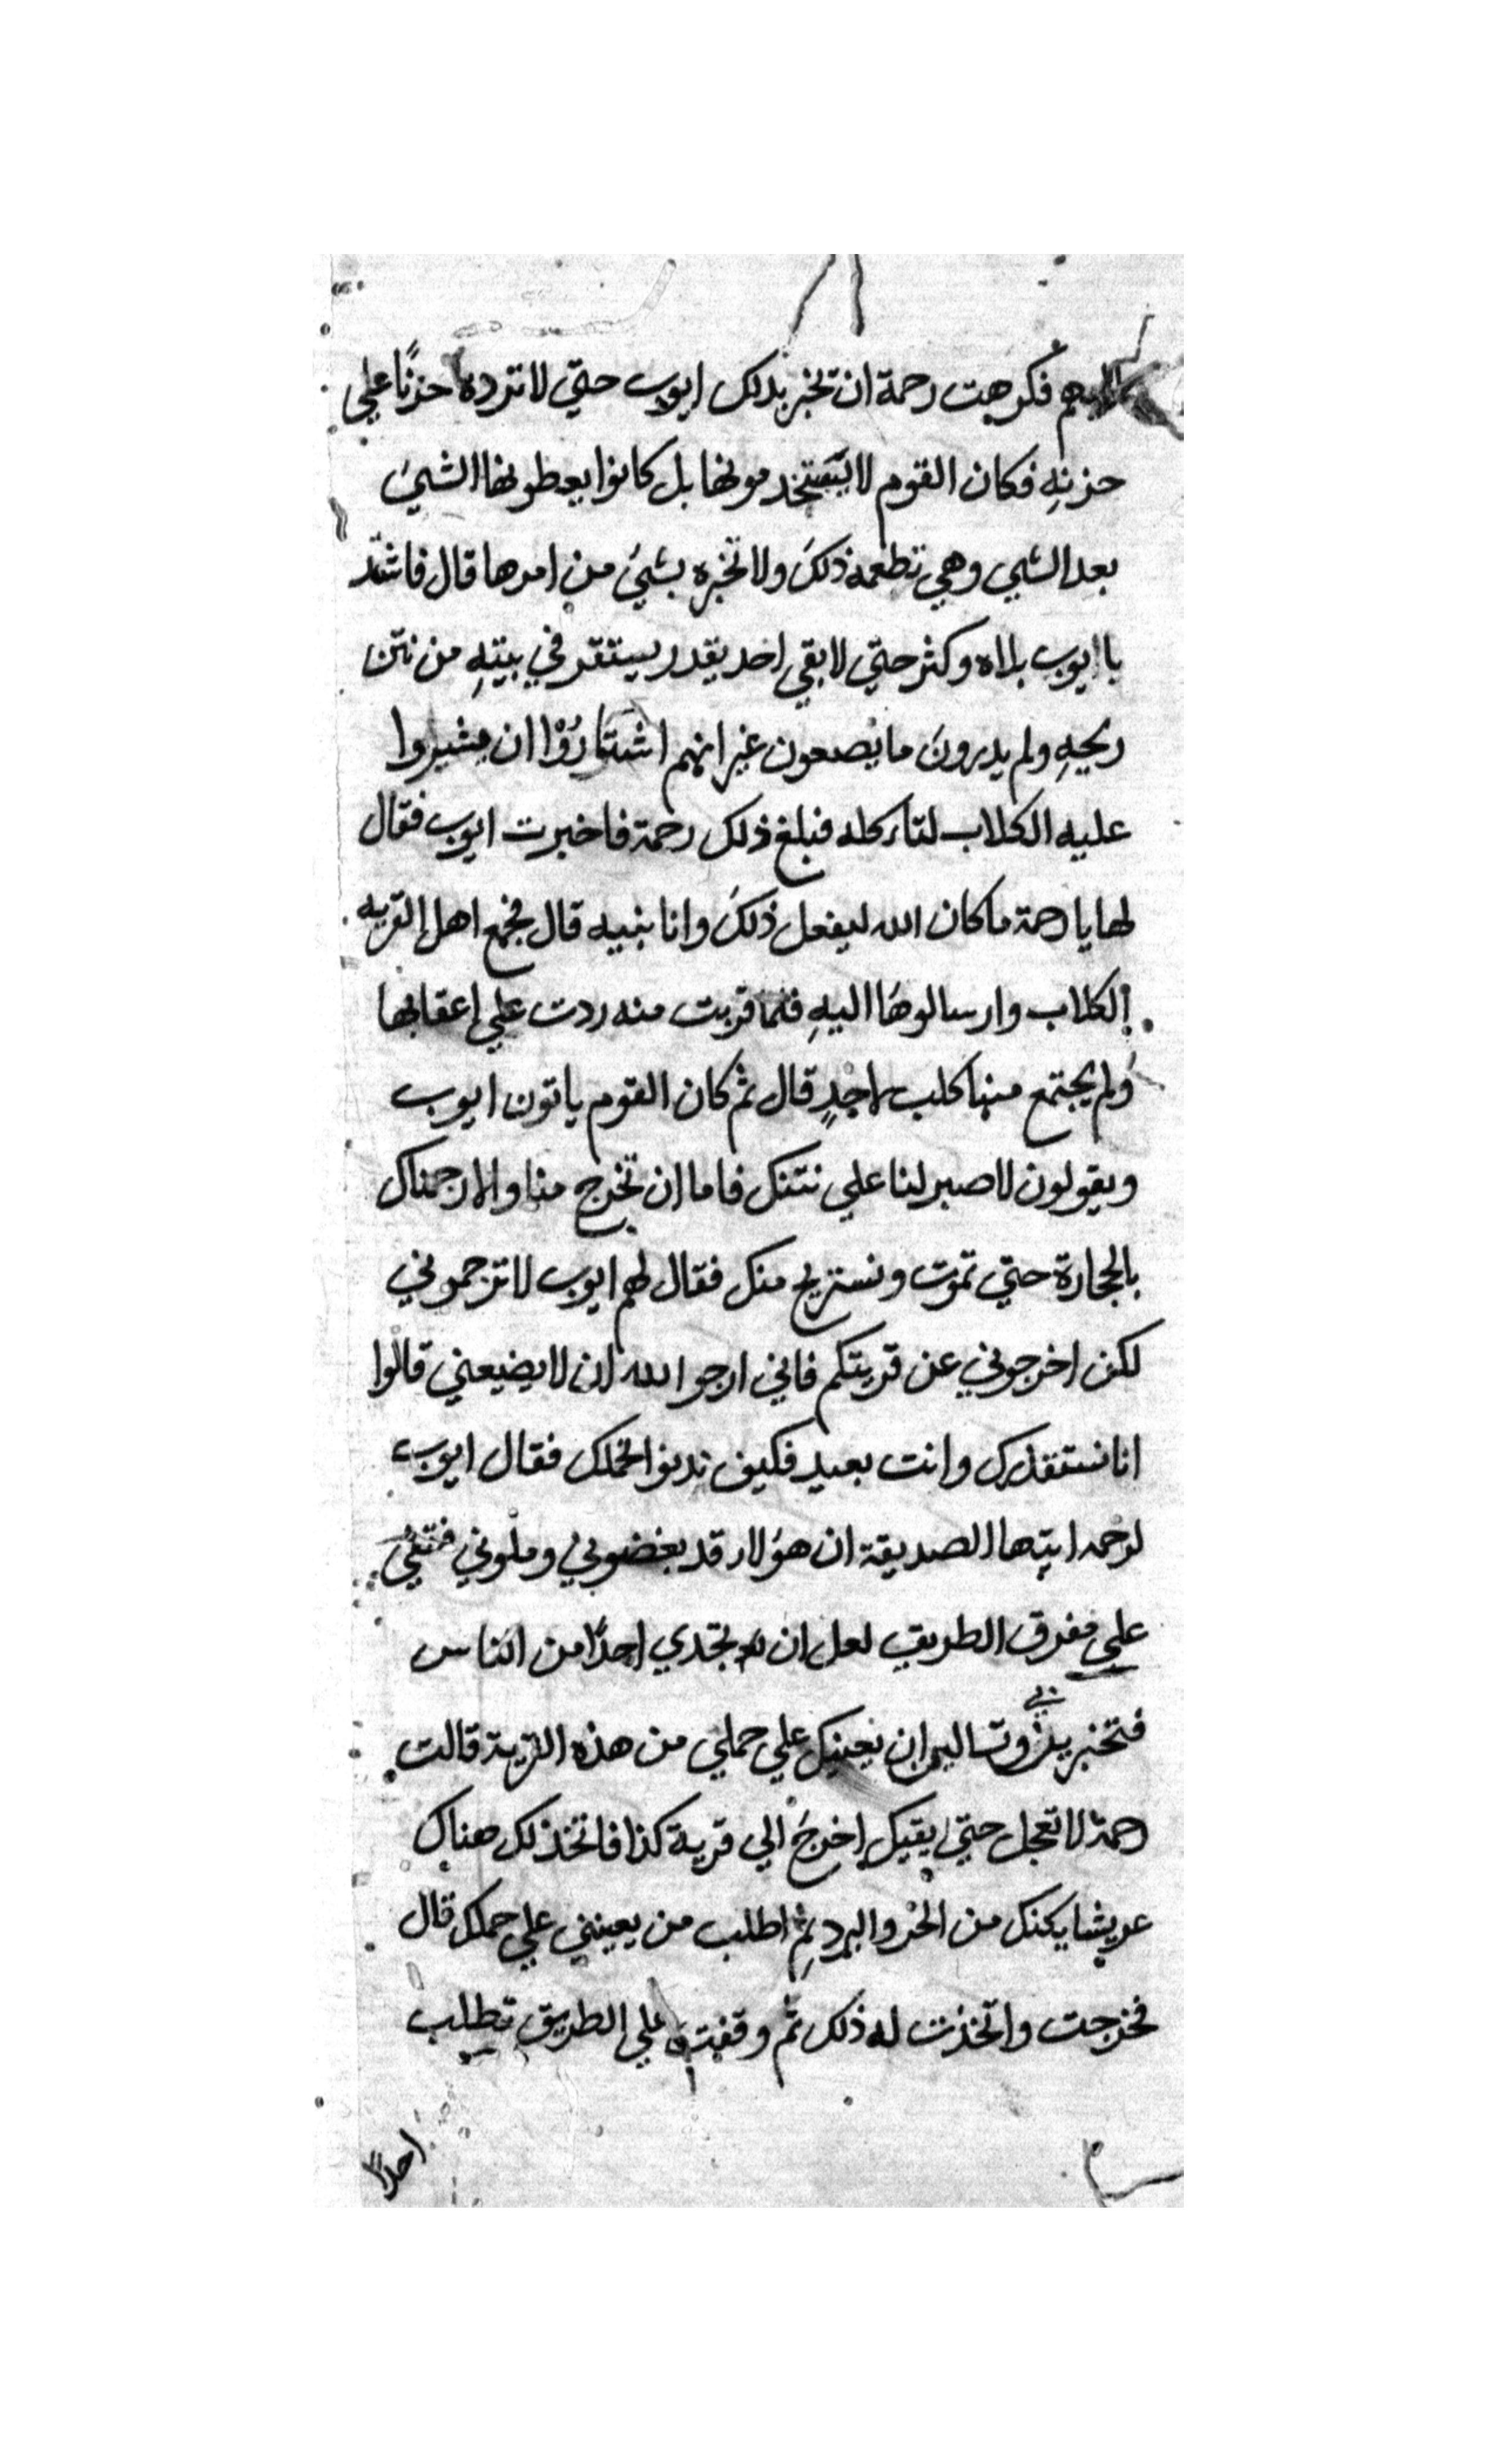 فكرهت رحمة ان تخبر بذلك ايوب حتي لا تزده حزنًا علي
حزنهِ فكان القوم لا يستخدمونها بل كانوا يعطونها الشيء
بعد الشي وهي تطعمه ذلكَ ولا تخبره بشيء من امرها قال فاشتد
با ايوب بلاه وكثر حتي لا بقي احد يقدر يستقر في بيتهِ من نتن
ريحهِ ولم يدرون ما يصعون غير انهم ان يشيروا
عليه الكلاب لتاكله فبلغ ذلك رحمة فاخبرت ايوب فقال
لها يا رحمة ما كان الله ليفعل ذلكَ وانا بنبيه قال فجمع اهل القريه
الكلاب وارسالوها اليهِ فلما قربت منه ردت علي اعقابها
ولم يجتمع منها كلب واحدٍ قال ثم كان القوم ياتون ايوب
ويقولون لا صبر لنا علي نتنك فاما ان تخرج منا والا رجمناك
بالحجارة حتي تموت ونستريح منك فقال لهم ايوب لا ترجموني
لكن اخرجوني عن قريتكم فاني ارجوا لله ان لا يضيعني قالوا
انا نستقذرك وانت بعيد فكيف ندنوا لحملك فقال ايوب
لرحمه ايتها الصديقة ان هؤلاء قد بغضوني وملوني فتقيء
علي مفرق الطريق لعل ان تجدي احدًا من الناس
فتخبريه بي وتساليه ان يعينك علي حملي من هذه القرية قالت
رحمة لا تعجل حتي اخرجَ الي قرية كذا فاتخذ لك هناك
عريشا يكنك من الحر والبرد ثم اطلب من يعينني علي حملك قال
فخرجت واتخذت له ذلك ثم وقفت علي الطريق تطلب
احدًا